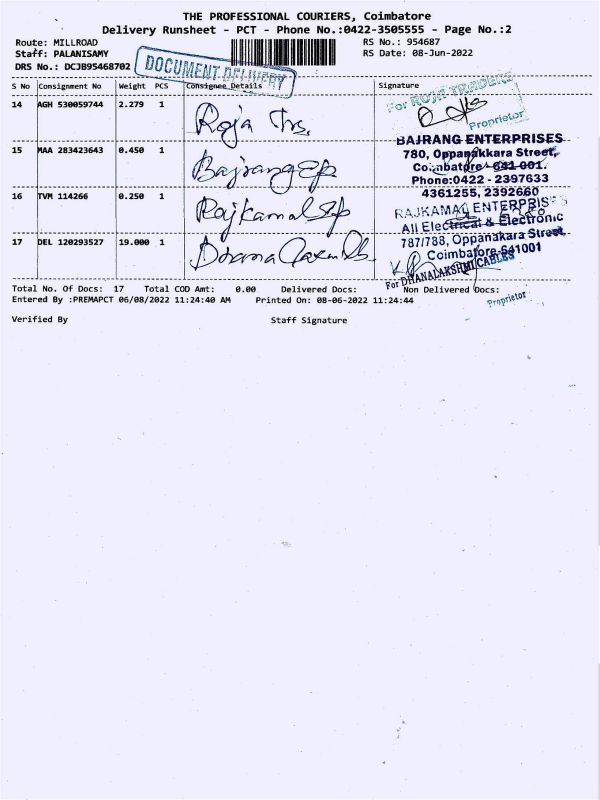 THE PROFESSIONAL COURIERS, Coimbatore
Delivery Runsheet - PCT - Phone No.:0422-3505555 - Page No.:2
Route: MILLROAD
RS No.: 954687
Staff: PALANISAMY
RS Date: 08-Jun-2022
DRS No.: DCJB95468702
DOCUMENT DELIVERY
S No Consignment No Weight PCS Consignee Details Signature
14 AGH 530059744 2.279 1 Roja Trs.
For ROJA TRADERS
Proprietor
15 MAA 283423643 0.450 1 Bajrang Ep
BAJRANG ENTERPRISES
780, Oppanakkara Street,
Coimbatore - 641 001.
Phone:0422 - 2397633
4361255, 2392660
16 TVM 114266 0.250 1 Rajkamal Ep
RAJKAMAL ENTERPRISES
All Electrical & Electronic
787/788, Oppanakara Street
Coimbatore-641001
17 DEL 120293527 19.000 1
For DHANALAKSHMI CABLES
Proprietor
Total No. Of Docs: 17 Total COD Amt: 0.00 Delivered Docs: Non Delivered Docs:
Entered By :PREMAPCT 06/08/2022 11:24:40 AM Printed On: 08-06-2022 11:24:44
Verified By Staff Signature